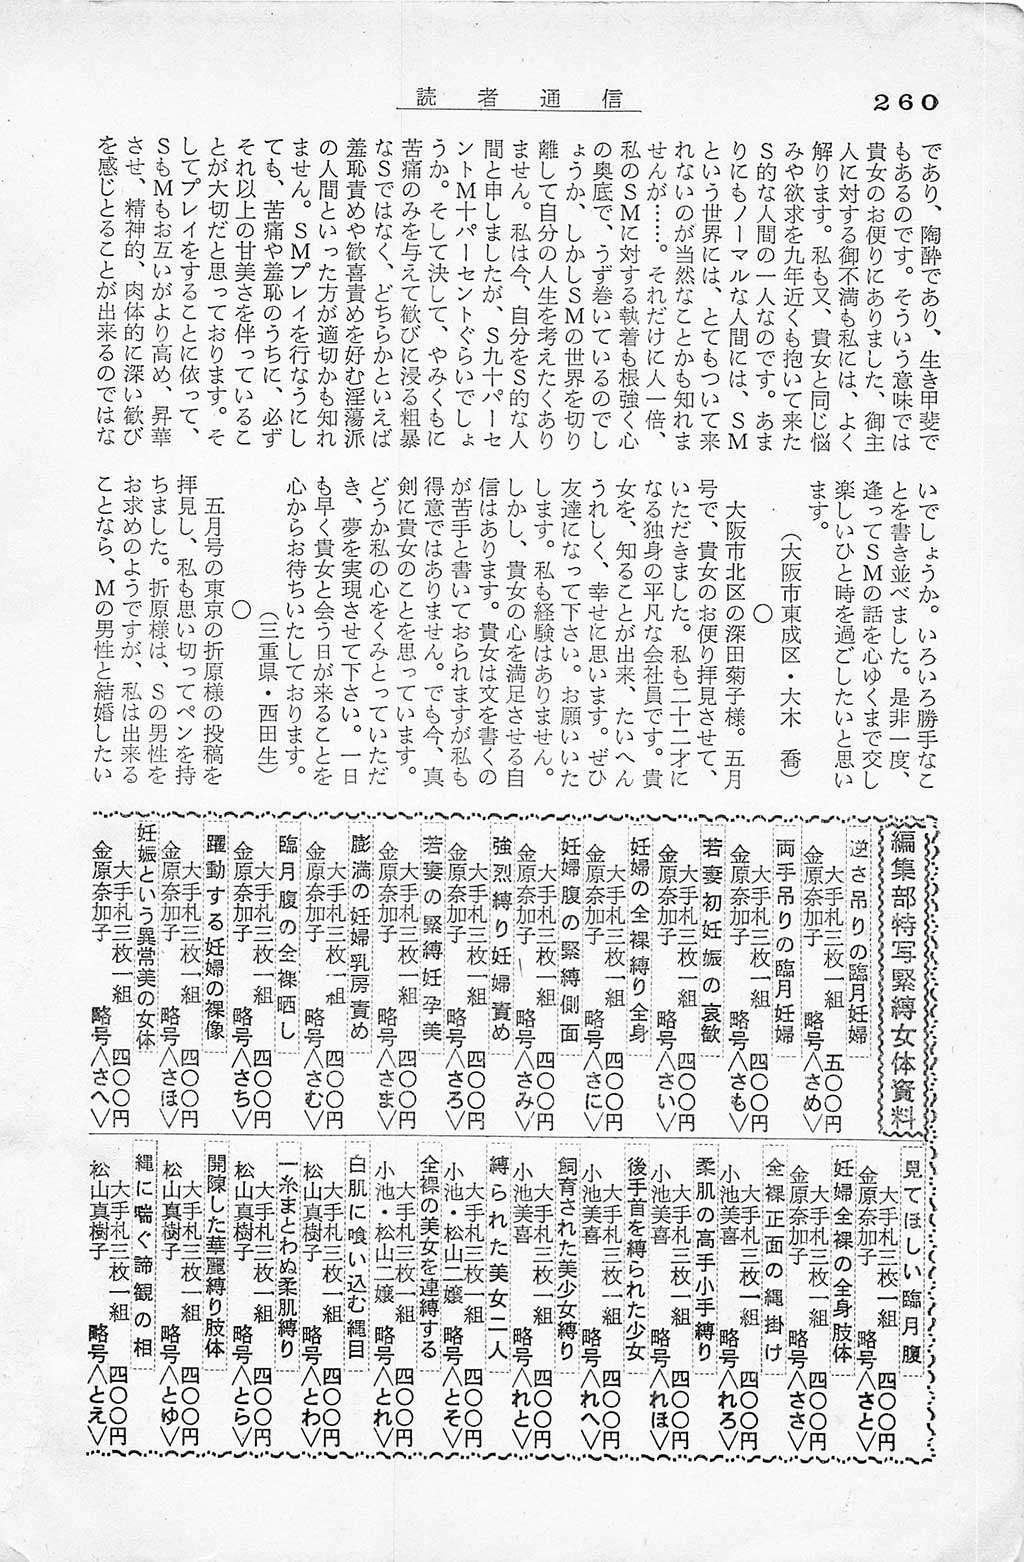 260
読者通信
であり、陶酔であり、生き甲斐で
もあるのです。そういう意味では
貴女のお便りにありました、御主
人に対する御不満も私には、よく
解ります。私も又、貴女と同じ悩
みや欲求を九年近くも抱いて来た
S的な人間の一人なのです。あま
りにもノーマルな人間には、SM
という世界には、とてもついて来
れないのが当然なことかも知れま
せんが……。それだけに人一倍、
私のSMに対する執着も根強く心
の奥底で、うず巻いているのでし
ょうか、しかしSMの世界を切り
離して自分の人生を考えたくあり
ません。私は今、自分をS的な人
間と申しましたが、S九十パーセ
ントM十パーセントぐらいでしょ
うか。そして決して、やみくもに
苦痛のみを与えて歓びに浸る粗暴
なSではなく、どちらかといえば
羞恥責めや歓喜責めを好む淫蕩派
の人間といった方が適切かも知れ
ません。SMプレイを行なうにし
ても、苦痛や羞恥のうちに、必ず
それ以上の甘美さを伴っているこ
とが大切だと思っております。そ
してプレイをすることに依って、
SもMもお互いがより高め、昇華
させ、精神的、肉体的に深い歓び
を感じとることが出来るのではな
いでしょうか。いろいろ勝手なこ
とを書き並べました。是非一度、
逢ってSMの話を心ゆくまで交し
楽しいひと時を過ごしたいと思い
ます。
（大阪市東成区・大木　喬）
○
大阪市北区の深田菊子様。五月
号で、貴女のお便り拝見させて、
いただきました。私も二十二才に
なる独身の平凡な会社員です。貴
女を、知ることが出来、たいへん
うれしく、幸せに思います。ぜひ
友達になって下さい。お願いいた
します。私も経験はありません。
しかし、貴女の心を満足させる自
信はあります。貴女は文を書くの
が苦手と書いておられますが私も
得意ではありません。でも今、真
剣に貴女のことを思っています。
どうか私の心をくみとっていただ
き、夢を実現させて下さい。一日
も早く貴女と会う日が来ることを
心からお待ちいたしております。
（三重県・西田生）
○
五月号の東京の折原様の投稿を
拝見し、私も思い切ってペンを持
ちました。折原様は、Sの男性を
お求めのようですが、私は出来る
ことなら、Mの男性と結婚したい
編集部特写緊縛女体資料
逆さ吊りの臨月妊婦
大手札三枚一組　五〇〇円
金原奈加子　略号〈さめ〉
両手吊りの臨月妊婦
大手札三枚一組　四〇〇円
金原奈加子　略号〈さも〉
若妻初妊娠の哀歓
大手札三枚一組　四〇〇円
金原奈加子　略号〈さい〉
妊婦の全裸縛り全身
大手札三枚一組　四〇〇円
金原奈加子　略号〈さに〉
妊婦腹の緊縛側面
大手札三枚一組　四〇〇円
金原奈加子　略号〈さみ〉
強烈縛り妊婦責め
大手札三枚一組　四〇〇円
金原奈加子　略号〈さろ〉
若妻の緊縛妊孕美
大手札三枚一組　四〇〇円
金原奈加子　略号〈さま〉
膨満の妊婦乳房責め
大手札三枚一組　四〇〇円
金原奈加子　略号〈さむ〉
臨月腹の全裸晒し
大手札三枚一組　四〇〇円
金原奈加子　略号〈さち〉
躍動する妊婦の裸像
大手札三枚一組　四〇〇円
金原奈加子　略号〈さほ〉
妊娠という異常美の女体
大手札三枚一組　四〇〇円
金原奈加子　略号〈さへ〉
見てほしい臨月腹
大手札三枚一組　四〇〇円
金原奈加子　略号〈さと〉
妊婦全裸の全身肢体
大手札三枚一組　四〇〇円
金原奈加子　略号〈ささ〉
全裸正面の縄掛け
大手札三枚一組　四〇〇円
小池美喜　略号〈れろ〉
柔肌の高手小手縛り
大手札三枚一組　四〇〇円
小池美喜　略号〈れほ〉
後手首を縛られた少女
大手札三枚一組　四〇〇円
小池美喜　略号〈れへ〉
飼育された美少女縛り
大手札三枚一組　四〇〇円
小池美喜　略号〈れと〉
縛られた美女二人
大手札三枚一組　四〇〇円
小池・松山二嬢　略号〈とそ〉
全裸の美女を連縛する
大手札三枚一組　四〇〇円
小池・松山二嬢　略号〈とれ〉
白肌に喰い込む縄目
大手札三枚一組　四〇〇円
松山真樹子　略号〈とわ〉
一糸まとわぬ柔肌縛り
大手札三枚一組　四〇〇円
松山真樹子　略号〈とら〉
開陳した華麗縛り肢体
大手札三枚一組　四〇〇円
松山真樹子　略号〈とゆ〉
縄に喘ぐ諦観の相
大手札三枚一組　四〇〇円
松山真樹子　略号〈とえ〉